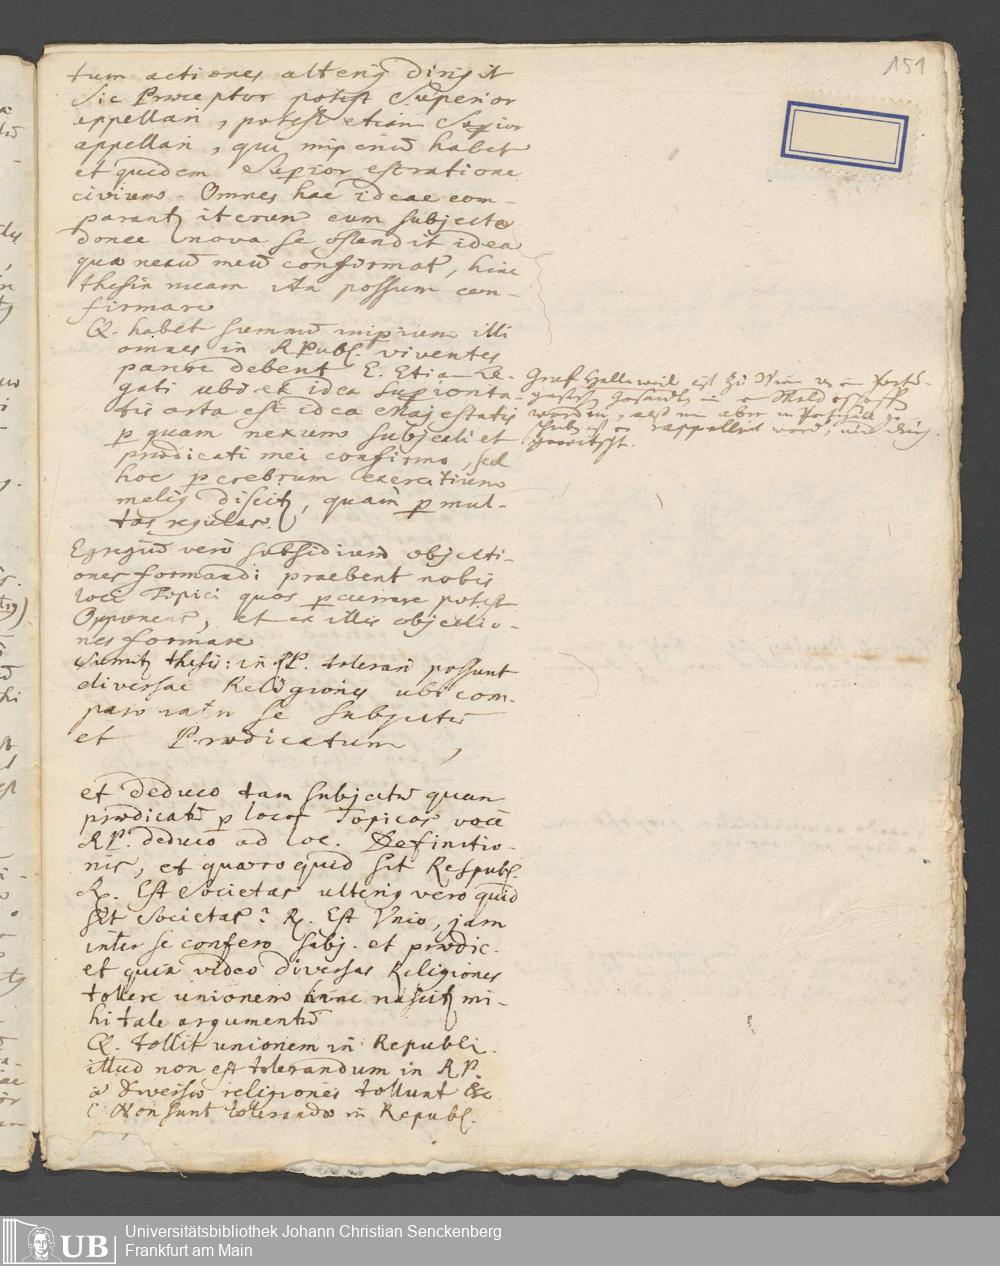 151
tum actiones alteriꝰ dirigit
Sic Præceptor potest Superior
appellari, potest etiam Supior
appellari, qui imperiū habet
et quidem Superior est ratione
civium. Omnes hae ideae com-
parantʒ iterum cum subjecto
donec nova se ostendit idea
quæ nexū meū confirmat, hinc
thesin meam ita possum con-
firmare
Q. habet summū imperium illi
omnes in RPubl. viventes
parere debent E. Etiam Le-
gati ubi ex idea Superiorita-
tis orta est idea Majestatis
p quam nexum subjecti et
prædicati mei confirmo, sed
hoc p crebrum exercitium
meliꝰ discitʒ, quam p mul-
tas regulas.
Egregiū vero subsidium objecti-
ones formandi praebent nobis
loci Topici quos pcurrere potest
Opponens, et ex illis objectio-
nes formare
Sumitʒ thesis: in RP. tolerari possunt
diversae Religiones ubi com-
paro inter se Subjectū
et Prædicatum,
et deduco tam subjectū quam
prædicatū p locos Topicos voce
RP. deduco ad loc. Definitio-
nis, et quæro quid sit Respubl.
R. Est Societas ulteriꝰ vero quid
sit Societas? R. Est Unio, jam
inter se confero subj. et prædic.
et quia video diversas Religiones
tollere unionem hinc nascitʒ mi-
hi tale argumentū
Q. tollit unionem in Republi.
illud non est tolerandum in RP.
a diversæ religiones tollunt &c
E Non sunt tolerandæ in Republ.
Graf Hallweil ist zu Wien
worden, als
rappellirt
Universitätsbibliothek Johann Christian Senckenberg
Frankfurt am Main
UB